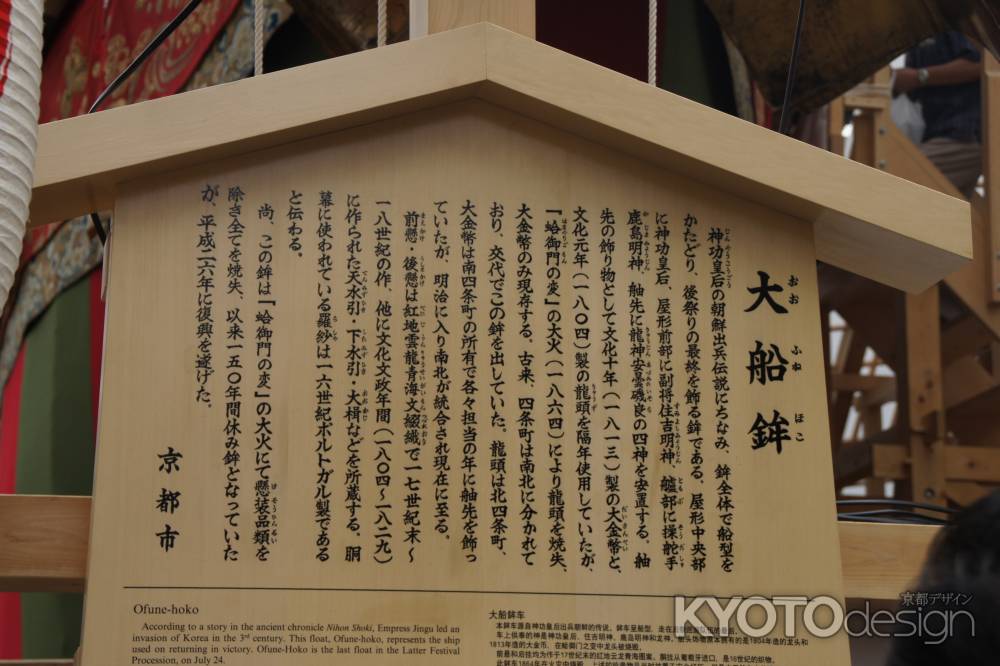 大船鉾
おお ふね ほこ
神功皇后の朝鮮出兵伝説にちなみ、鉾全体で船型を
かたどり、後祭りの最終を飾る鉾である。屋形中央部
に神功皇后、屋形前部に副将住吉明神、艫部に操舵手
鹿島明神、舳先に龍神安曇磯良の四神を安置する。舳
先の飾り物として文化十年(一八一三)製の大金幣と、
文化元年(一八〇四)製の龍頭を隔年使用していたが、
「蛤御門の変」の大火(一八六四)により龍頭を焼失、
大金幣のみ現存する。古来、四条町は南北に分かれて
おり、交代でこの鉾を出していた。龍頭は北四条町、
大金幣は南四条町の所有で各々担当の年に舳先を飾っ
ていたが、明治に入り南北が統合され現在に至る。
前懸・後懸は紅地雲龍青海文綴織で一七世紀末~
一八世紀の作、他に文化文政年間(一八〇四~一八二九)
に作られた天水引・下水引・大楫などを所蔵する。胴
幕に使われている羅紗は一六世紀ポルトガル製である
と伝わる。
尚、この鉾は「蛤御門の変」の大火にて懸装品類を
除き全てを焼失、以来一五〇年間休み鉾となっていた
が、平成二六年に復興を遂げた。
京都市
Ofune-hoko
According to a story in the ancient chronicle Nihon Shoki, Empress Jingu led an
invasion of Korea in the 3rd century. This float, Ofune-hoko, represents the ship
used on returning in victory. Ofune-Hoko is the last float in the Latter Festival
Procession, on July 24.
大船鉾车
京都デザイン
KYOTOdesign